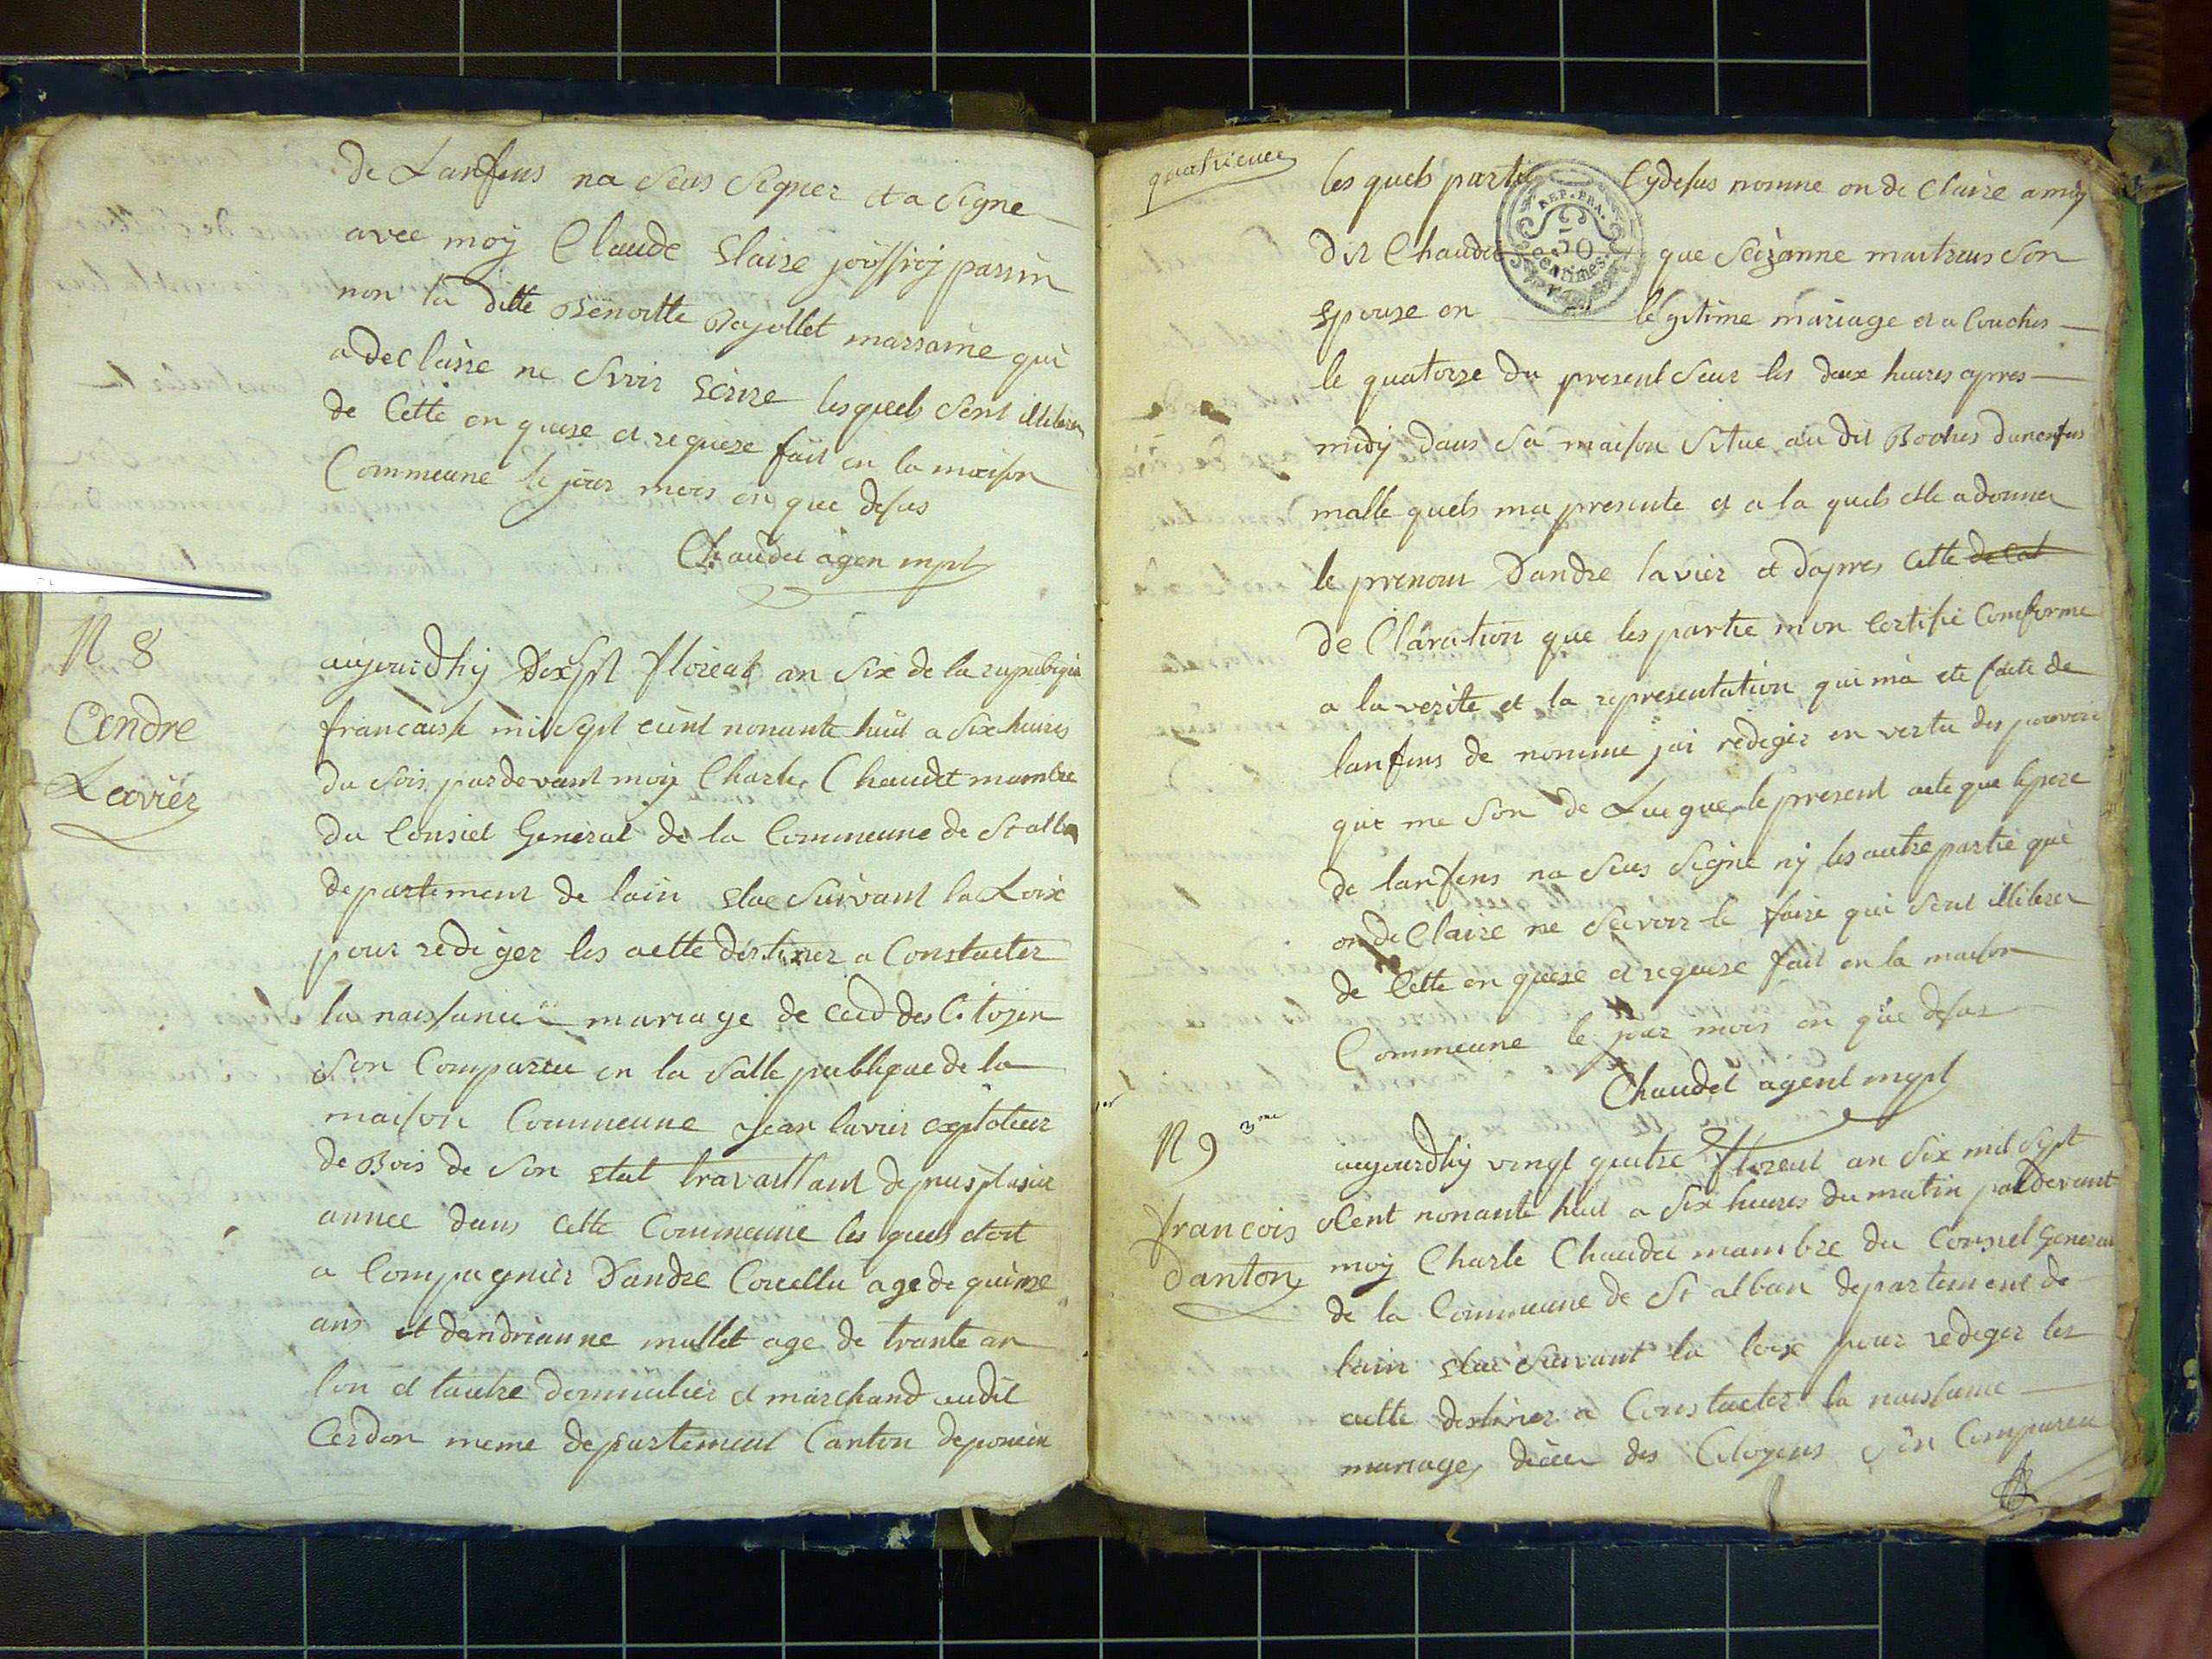 de Lanfens na seus signer et a signe
avec moÿ Claude Claire jouffroy parrin
non la ditte Benoitte Bajollet marraine qui
a declaire ne svoir scrire lesquels sent illiterer
de Cette en quere et requere fait en la maison
Commeune le jour mois en que desus
Chaudet agen mpl
N 8
Andre
Lavier
aujourdhÿ Dixsept floreal an six de la republiqu
francaise mil sept cent nonante huit a six heures
du soir pardevant moÿ Charle Chaudet mambre
du Consiel General de la Commeune de St alban
departement de lain elue suivant la Loix
pour rediger les actte destiner a Constacter
la naissance mariage de ced des Citoyen
son Compareu en la salle publique de la
maison Commeune jean lavier exploteur
de Bois de son stat travaillant depuis plusieur
annee dans cette Commeune les quels etoit
a Compagnier Dandre Corcellu age de quinze
ans et dandrianne mullet age de trante an
lon et lautre domicilier et marchand audit
Cerdon meme departement Canton de poncin
quatrieme
REP. FRA.
50
centimes
les quels partie Cydesus nomme on de Claire a moy
dit Chaudet que suzanne maitreus son
spouse en legitime mariage et a Couches
le quatorze du present sur les deux heures apres
midÿ dans sa maison situe au dit Boches dunenfens
malle quels ma presente et a la quels elle a donner
le prenom Dandre lavier et dapres cette de Cat
de Claration que les partie mon Certifie Comforme
a la verite et la representation qui ma ete faite de
lanfens de nomme jai rediger en vertu des pouvoir
qui me son de Luegue le present acte que le pere
de lanfens na seus signe nÿ les autre partie qui
on de Claire ne seevoir le faire qui sent illiterer
de Cette en quere et requere fait en la maison
Commeune le jour mois en que desus
Chaudet agent mpl
N 9 3me
francois
Danton
aujourdhÿ vingt quatre floreal an six mil sept
Cent nonante huit a six heures du matin pardevant
moÿ Charle Chaudet mambre du Consiel General
de la Commeune de St alban departement de
lain elue suivant la loix pour rediger les
actte destiner a Constacter la naissance
mariage des Citoyens son Compareu